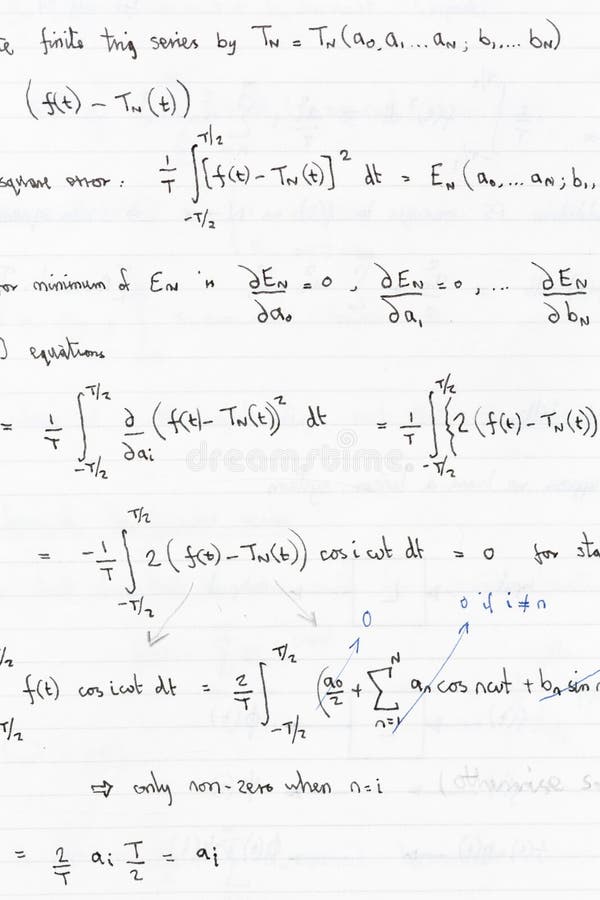 te finite trig series by T_N = T_N(a_0, a_1 ... a_N ; b_1, ... b_N)
(f(t) - T_N(t))
square error : 1/T ∫_{-T/2}^{T/2} [f(t) - T_N(t)]^2 dt = E_N (a_0, ... a_N ; b_1,
or minimum of E_N is ∂E_N/∂a_0 = 0 , ∂E_N/∂a_1 = 0 , ... ∂E_N/∂b_N
) equations
= 1/T ∫_{-T/2}^{T/2} ∂/∂a_i (f(t) - T_N(t))^2 dt = 1/T ∫_{-T/2}^{T/2} {2 (f(t) - T_N(t))
dreamstime.
= -1/T ∫_{-T/2}^{T/2} 2 (f(t) - T_N(t)) cos iωt dt = 0 for sta
0 0 if i ≠ n
T/2 T/2 f(t) cos iωt dt = 2/T ∫_{-T/2}^{T/2} (a_0/2 + Σ_{n=1}^{N} a_n cos nωt + b_n sin n
⇒ only non-zero when n=i
= 2/T a_i T/2 = a_i